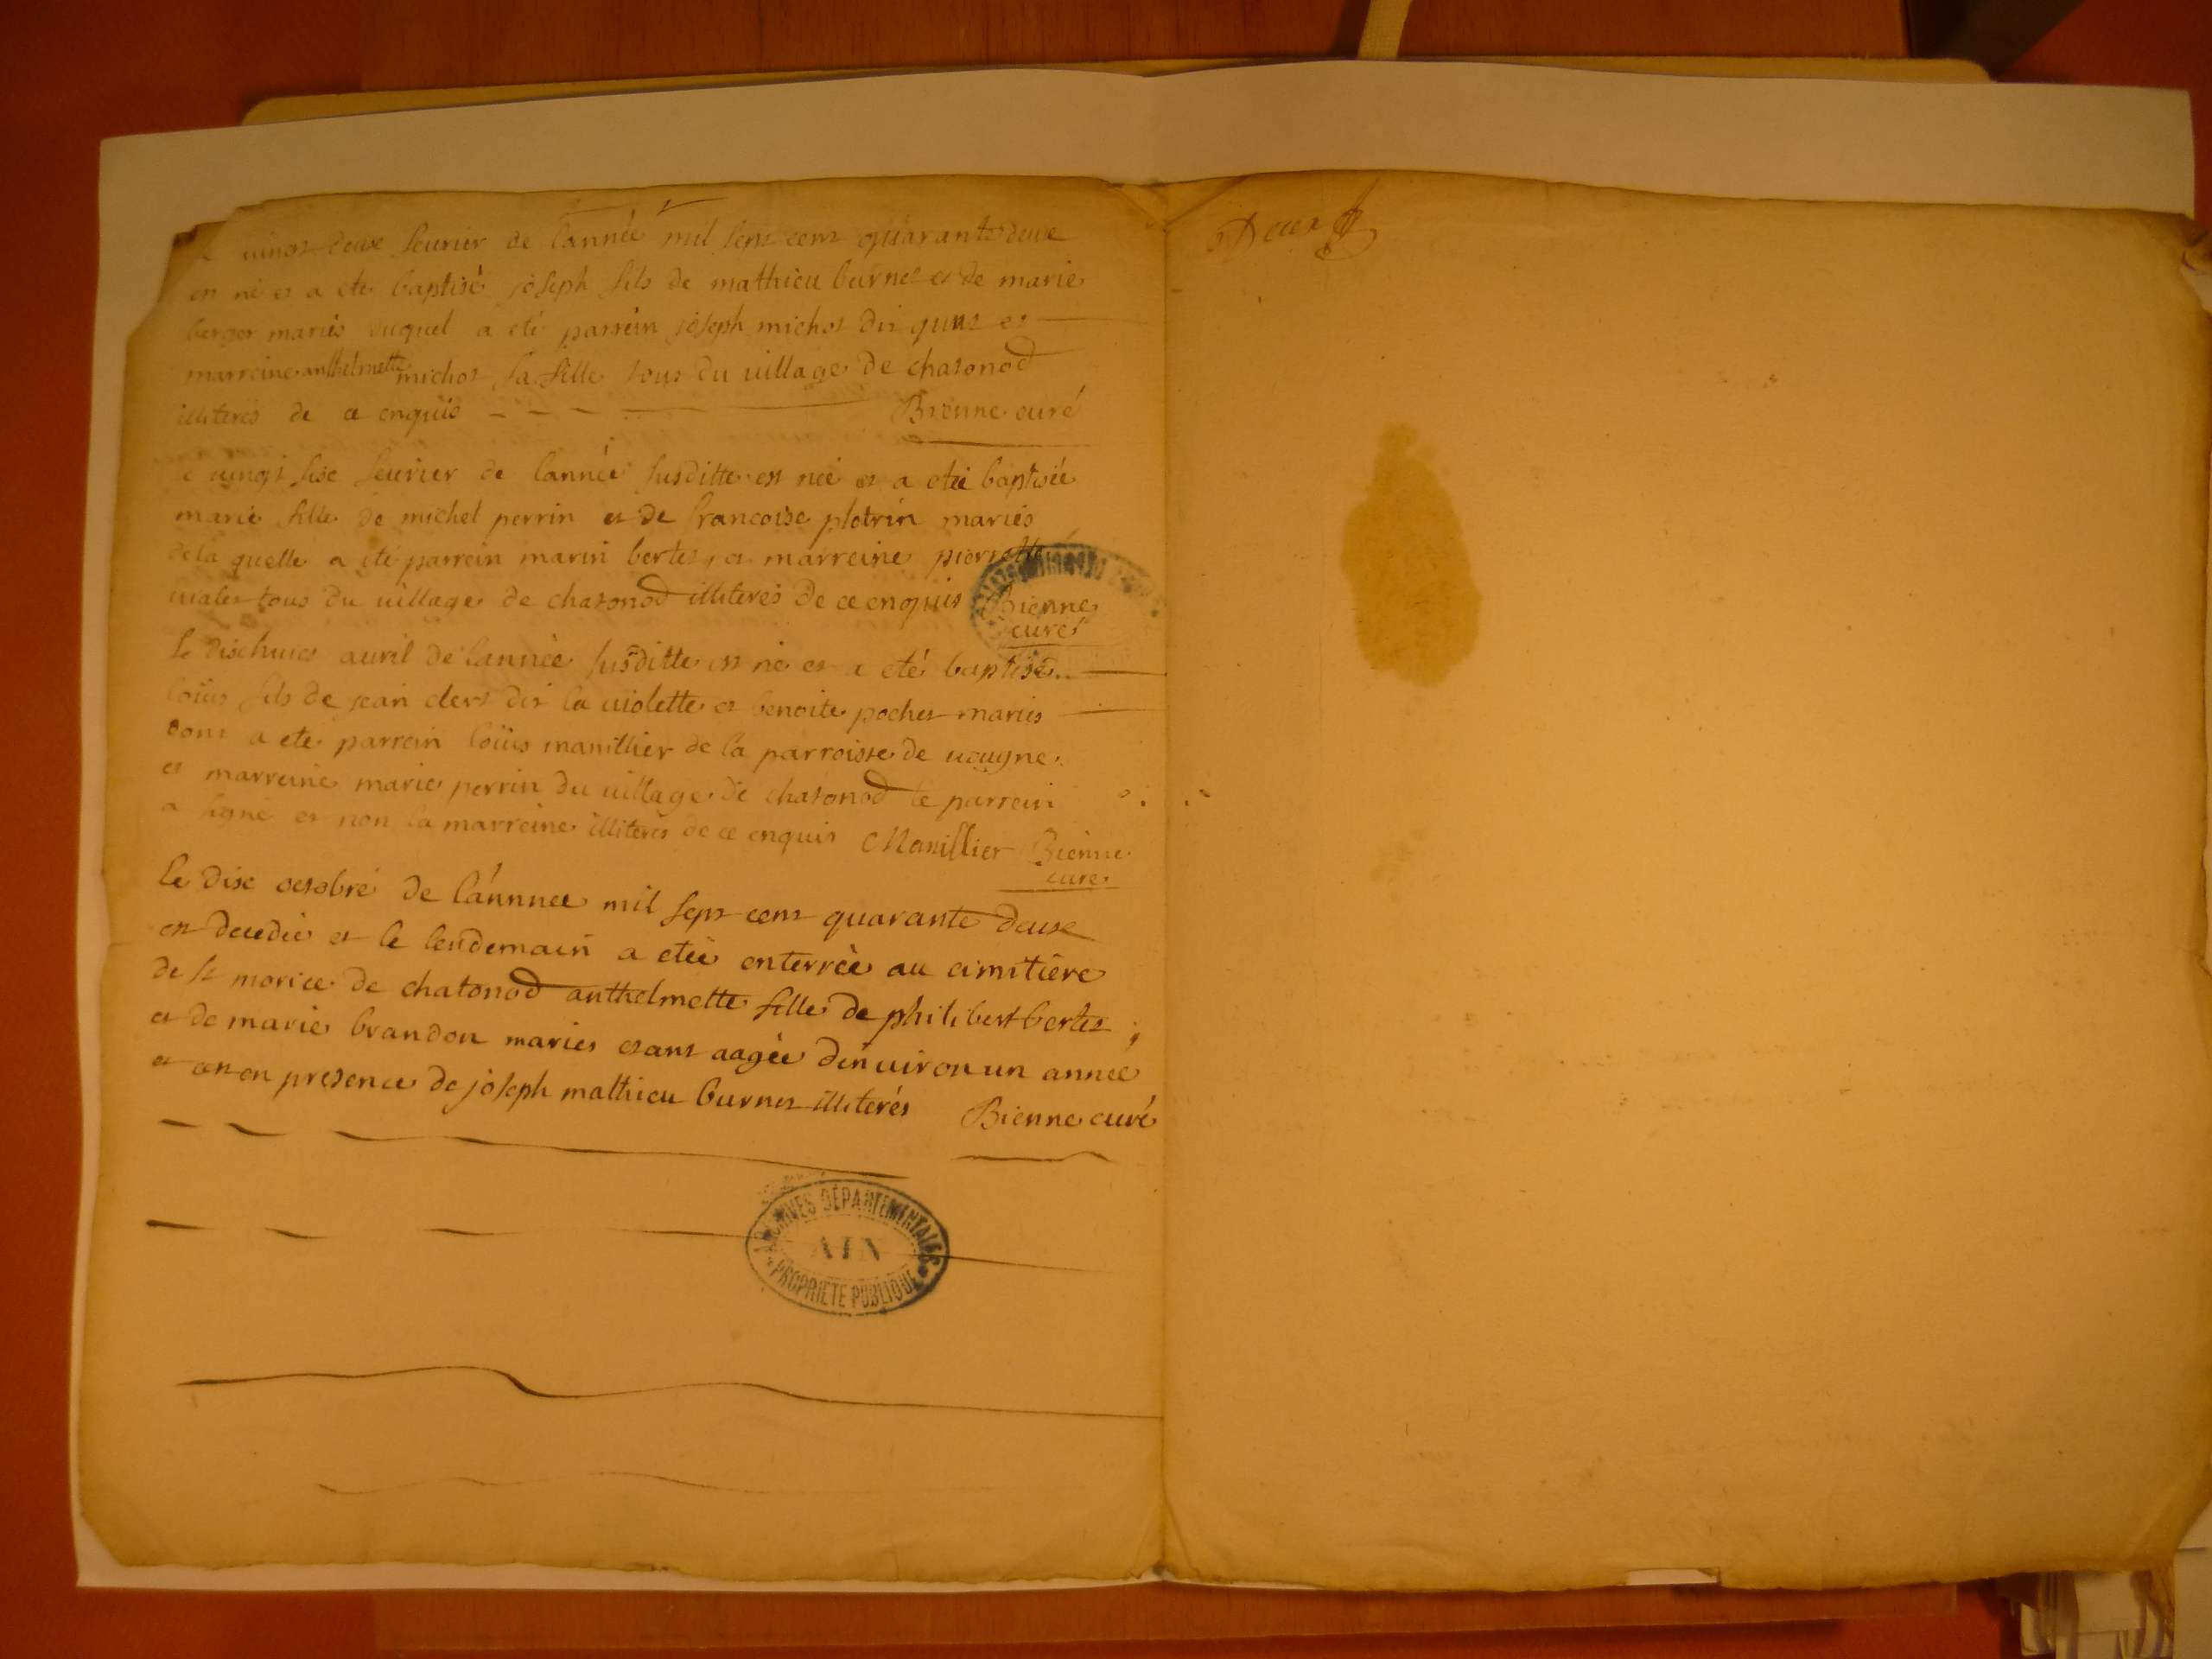 vingt deux feurier de l'année mil sept cent quarante deux
est né et a eté baptisé joseph fils de mathieu burnet et de marie
berger mariés duquel a eté parrein joseph michot dit et
marreine anthelmette michot sa fille tous du uillage de chatonod
illiterés de ce enquis Bienne curé
uingt sixe feurier de l'année susditte est née et a etée baptisée
marie fille de michel perrin et de francoise plotrin mariés
de la quelle a eté parrein marin bertet, et marreine pierrette
uialet tous du uillage de chatonod illiterés de ce enquis Bienne
curé
Le dixhuict auril de l'année susditte est né et a eté baptisé
loüis fils de jean clert dit la uiolette et benoite pochet mariés
dont a eté parrein loüis manillier de la parroisse de uougne
et marreine marie perrin du uillage de chatonod le parrein
a signé et non la marreine illiterés de ce enquis Manillier Bienne
curé
Le dixe octobre de l'annnee mil sept cent quarante deuxe
est decedée et le lendemain a etée enterrée au cimitiere
de st morice de chatonod anthelmette fille de philibert bertet
et de marie brandon mariés etant aagée d'enuiron un année
et en presence de joseph mathieu burnet illiterés Bienne curé
ARCHIVES DÉPARTEMENTALES
AIN
PROPRIETE PUBLIQUE